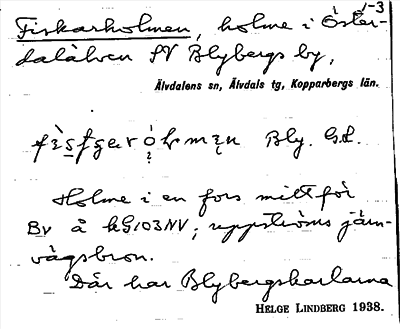 √-3
Fiskarholmen, holme i Öster-
dalälven SV Blybergs by,
Älvdalens sn, Älvdals tg, Kopparbergs län.
Bly. G.L.
Holme i en fors mitt för
Bv å kG103NV; uppströms järn-
vägsbron.
Där har Blybergskarlarna
HELGE LINDBERG 1938.